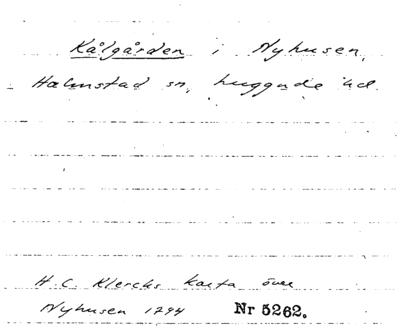 Kålgården i Nyhusen,
Halmstad sn, Luggude hd.
H. C. Klercks karta över
Nyhusen 1794 Nr 5262.